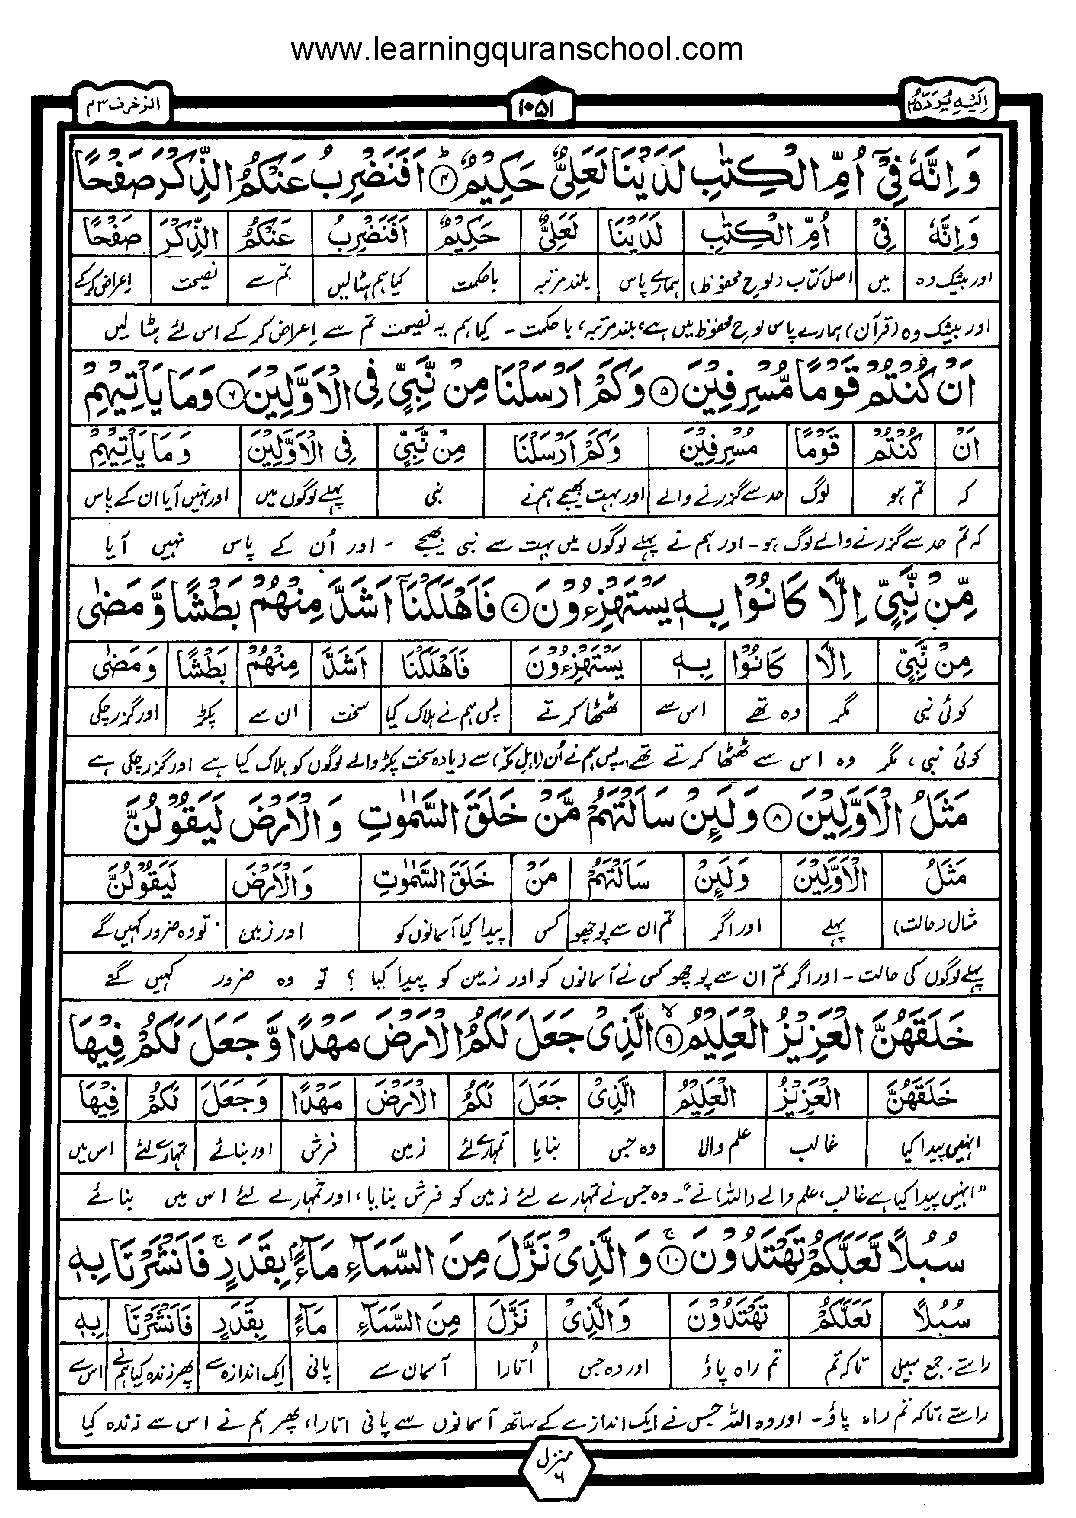 www.learningquranschool.com
اِلَيْهِ يُرَدُّ ۲۵
۱۰۵۱
الزخرف ۴۳
وَ اِنَّهٗ فِیْۤ اُمِّ الْكِتٰبِ لَدَیْنَا لَعَلِیٌّ حَكِیْمٌ ۴ اَفَنَضْرِبُ عَنْكُمُ الذِّكْرَ صَفْحًا
وَ اِنَّهٗ فِیْ اُمِّ الْكِتٰبِ لَدَیْنَا لَعَلِیٌّ حَكِیْمٌ اَفَنَضْرِبُ عَنْكُمُ الذِّكْرَ صَفْحًا
اور بیشک وہ میں اصل کتاب (لوح محفوظ) ہمارے پاس بلند مرتبہ باحکمت کیا ہم ہٹا لیں تم سے نصیحت اعراض کر کے
اور بیشک وہ (قرآن) ہمارے پاس لوح محفوظ میں ہے، بلند مرتبہ، باحکمت - کیا ہم یہ نصیحت تم سے اعراض کر کے اس لئے ہٹا لیں
اَنْ كُنْتُمْ قَوْمًا مُّسْرِفِیْنَ ۵ وَ كَمْ اَرْسَلْنَا مِنْ نَّبِیٍّ فِی الْاَوَّلِیْنَ ۶ وَ مَا یَاْتِیْهِمْ
اَنْ كُنْتُمْ قَوْمًا مُسْرِفِیْنَ وَكَمْ اَرْسَلْنَا مِنْ نَّبِیٍّ فِی الْاَوَّلِیْنَ وَمَا یَاْتِیْهِمْ
کہ تم ہو لوگ حد سے گزرنے والے اور بہت بھیجے ہم نے نبی پہلے لوگوں میں اور نہیں آیا ان کے پاس
کہ تم حد سے گزرنے والے لوگ ہو - اور ہم نے پہلے لوگوں میں بہت سے نبی بھیجے - اور اُن کے پاس نہیں آیا
مِّنْ نَّبِیٍّ اِلَّا كَانُوْا بِهٖ یَسْتَهْزِءُوْنَ ۷ فَاَهْلَكْنَاۤ اَشَدَّ مِنْهُمْ بَطْشًا وَّ مَضٰی
مِنْ نَّبِیٍّ اِلَّا كَانُوْا بِهٖ یَسْتَهْزِءُوْنَ فَاَهْلَكْنَا اَشَدَّ مِنْهُمْ بَطْشًا وَمَضٰی
کوئی نبی مگر وہ تھے اس سے ٹھٹھا کرتے پس ہم نے ہلاک کیا سخت ان سے پکڑ اور گزر چکی
کوئی نبی، مگر وہ اس سے ٹھٹھا کرتے تھے، پس ہم نے اُن (اہل مکہ) سے زیادہ سخت پکڑ والے لوگوں کو ہلاک کیا ہے اور گزر چکی ہے
مَثَلُ الْاَوَّلِیْنَ ۸ وَ لَىِٕنْ سَاَلْتَهُمْ مَّنْ خَلَقَ السَّمٰوٰتِ وَ الْاَرْضَ لَیَقُوْلُنَّ
مَثَلُ الْاَوَّلِیْنَ وَلَىِٕنْ سَاَلْتَهُمْ مَنْ خَلَقَ السَّمٰوٰتِ وَالْاَرْضَ لَیَقُوْلُنَّ
مثال (حالت) پہلے اور اگر تم ان سے پوچھو کس پیدا کیا آسمانوں کو اور زمین تو وہ ضرور کہیں گے
پہلے لوگوں کی حالت - اور اگر تم ان سے پوچھو کس نے آسمانوں کو اور زمین کو پیدا کیا ؟ تو وہ ضرور کہیں گے
خَلَقَهُنَّ الْعَزِیْزُ الْعَلِیْمُ ۹ الَّذِیْ جَعَلَ لَكُمُ الْاَرْضَ مَهْدًا وَّ جَعَلَ لَكُمْ فِیْهَا
خَلَقَهُنَّ الْعَزِیْزُ الْعَلِیْمُ الَّذِیْ جَعَلَ لَكُمُ الْاَرْضَ مَهْدًا وَجَعَلَ لَكُمْ فِیْهَا
انہیں پیدا کیا غالب علم والا وہ جس بنایا تمہارے لئے زمین فرش اور بنائے تمہارے لئے اس میں
"انہیں پیدا کیا ہے غالب، علم والے (اللہ) نے"- وہ جس نے تمہارے لئے زمین کو فرش بنایا، اور تمہارے لئے اس میں بنائے
سُبُلًا لَّعَلَّكُمْ تَهْتَدُوْنَ ۱۰ وَ الَّذِیْ نَزَّلَ مِنَ السَّمَآءِ مَآءًۢ بِقَدَرٍ ۚ فَاَنْشَرْنَا بِهٖ
سُبُلًا لَعَلَّكُمْ تَهْتَدُوْنَ وَالَّذِیْ نَزَّلَ مِنَ السَّمَآءِ مَآءً بِقَدَرٍ فَاَنْشَرْنَا بِهٖ
راستے - جمع سبیل تاکہ تم تم راہ پاؤ اور وہ جس اُتارا آسمان سے پانی ایک اندازہ سے پھر زندہ کیا ہم نے اس سے
راستے، تاکہ تم راہ پاؤ - اور وہ اللہ جس نے ایک اندازے کے ساتھ آسمانوں سے پانی اتارا، پھر ہم نے اس سے زندہ کیا
منزل ۶